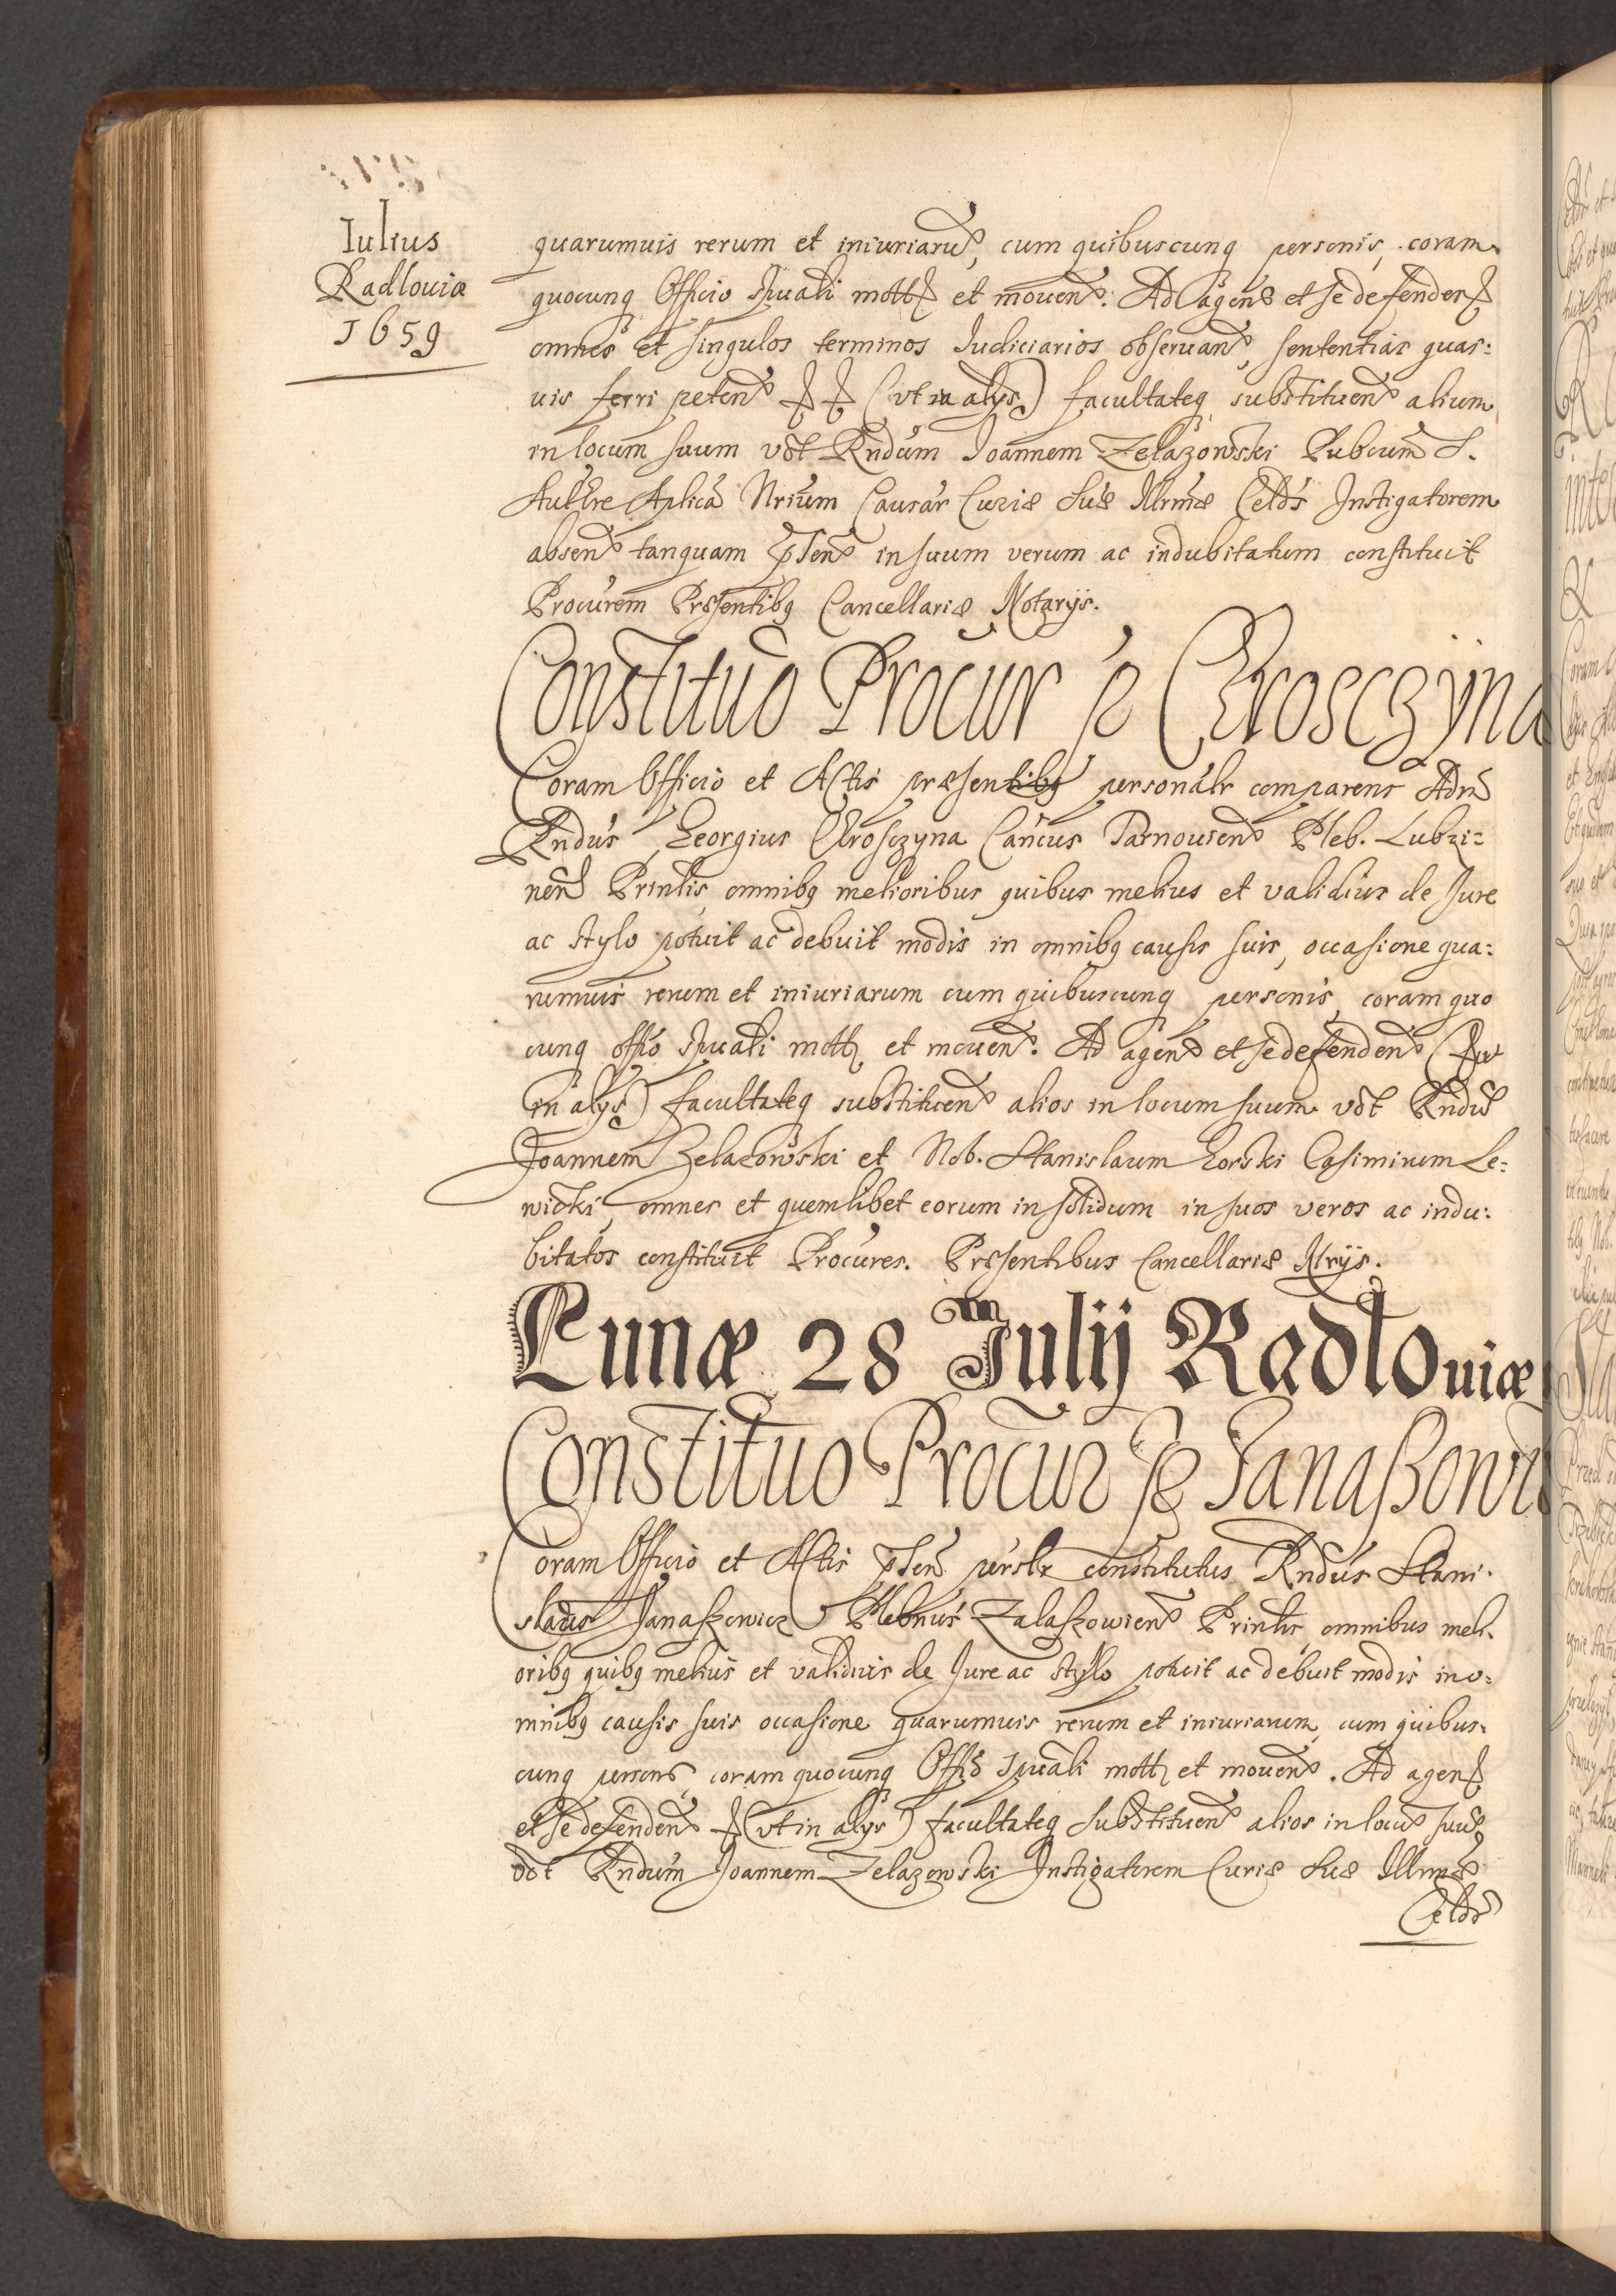 Iulius
Radlouiæ
1659
quarumuis rerum et iniuriarũ, cum quibuscunq personis, coram
quocunq Officio Spuali mott et mouen. Ad agen et se defender
omnes et singulos terminos Iudiciarios obseruan, sententias quas:
uis ferri peten (vt in alys) facultateq substituen alium
in locum suum vdt Rndum Joannem Zelazowski Pubcum S.
Authre Aplica Nrium Causar Curiæ Suæ Illrmæ Celdis Instigatorem
absen tanquam pnsen in suum verum ac indubitatum constituit
Procurem Præsentibq Cancellariæ Notarijs.
Constituo Procur p Chrosczyna
Coram Officio et Actis præsentibq personalr comparens Adm
Rndus Georgius Chrosczyna Cancus Tarnouien Pleb. Lubzi:
nen Prinlis, omnibq melioribus quibus melius et validius de Jure
ac stylo potuit ac debuit modis in omnibq causis suis, occasione qua:
rumuis rerum et iniuriarum cum quibuscunq personis, coram quo
cunq offio Spuali mott et mouen. Ad agen et se defenden (vt
in alys) facultateq substituen alios in locum suum vdt Rndũ
Joannem Zelazowski et Nob. Stanislaum Gorski Casimirum Le:
wicki, omnes et quemlibet eorum in solidum in suos veros ac indu:
bitatos constituit Procures. Præsentibus Cancellariæ Ntrijs.
Lunæ 28 Julij Radłouiæ
Constituo Procur p Janaszowi
Coram Officio et Actis pnsen perslr constitutus Rndus Stani:
slaus Janaszowicz Plebnus Zalaszowien Prinlis, omnibus meli:
oribq quibq melius et validius de Jure ac stylo potuit ac debuit modis in o:
mnibq causis suis occasione quarumuis rerum et iniuriarum, cum quibus:
cunq personis, coram quocunq Offio Spuali mott et mouen. Ad agen
et se defenden (vt in alys) facultateq substituen alios in locũ suũ
vdt Rndum Joannem Zelazowski Instigatorem Curiæ Suæ Illrmæ
Celdis